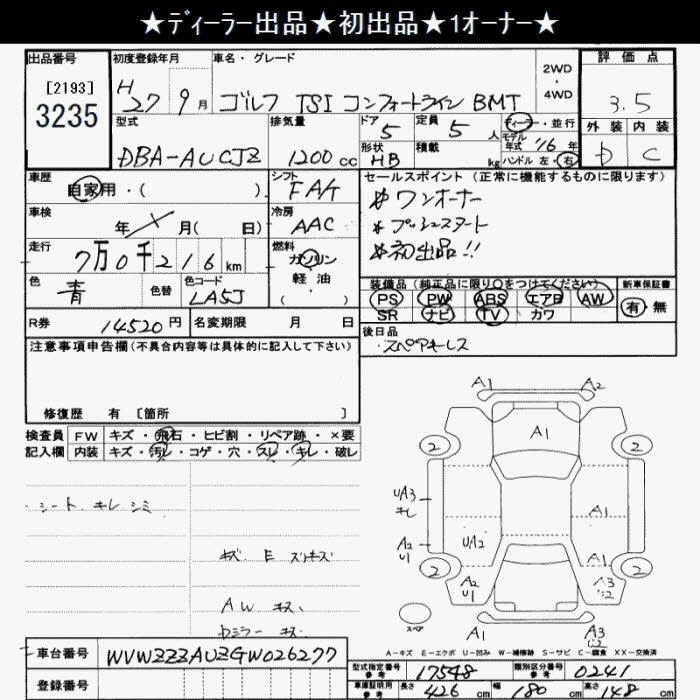 ★ディーラー出品★初出品★1オーナー★
出品番号
[2193]
3235
初度登録年月
H 27 9 月
車名・グレード
ゴルフ TSI コンフォートライン BMT
2WD
・
4WD
評価点
3.5
外装 内装
D C
型式
DBA-AUCJZ
排気量
1200 cc
ドア 5
形状 HB
定員 5 人
積載 kg
ディーラー・並行
モデル年式 '16 年
ハンドル 左・右
車歴
自家用・( )
シフト
FA/T
車検
年 月( 日)
冷房
AAC
走行
7万0千216 km
燃料
ガソリン
軽油
( ・ )
色
青
色替
色コード
LA5J
R券 14520 円
名変期限 月 日
セールスポイント (正常に機能するものに限ります)
* ワンオーナー
* プッシュスタート
* 初出品!!
装備品 (純正品に限り○をつけてください)
新車保証書
PS PW ABS エアB AW
SR ナビ TV カワ
有・無
後日品
・スペアキーレス
注意事項申告欄 (不具合内容等は具体的に記入して下さい)
修復歴 有 [箇所 ]
検査員 FW キズ・飛石・ヒビ割・リペア跡・×要
記入欄 内装 キズ・汚レ・コゲ・穴・スレ・キレ・破レ
・シート キレ シミ
キズ E スリキズ
AW キズ
Dミラー キズ
A1 A2
A1
2 2
UA3
キレ
A1
A2
U1
UA2
A1
2 2
A2
U1
A3
A1 A3
スペア
A-キズ E-エクボ U-凹み W-補修跡 S-サビ C-腐食 XX-交換済
車台番号 WVWZZZAUZGW026277
登録番号
型式指定番号 参考 17548
類別区分番号 参考 0241
車庫証明用 参考 長さ 426 cm 幅 180 cm 高さ 148 cm